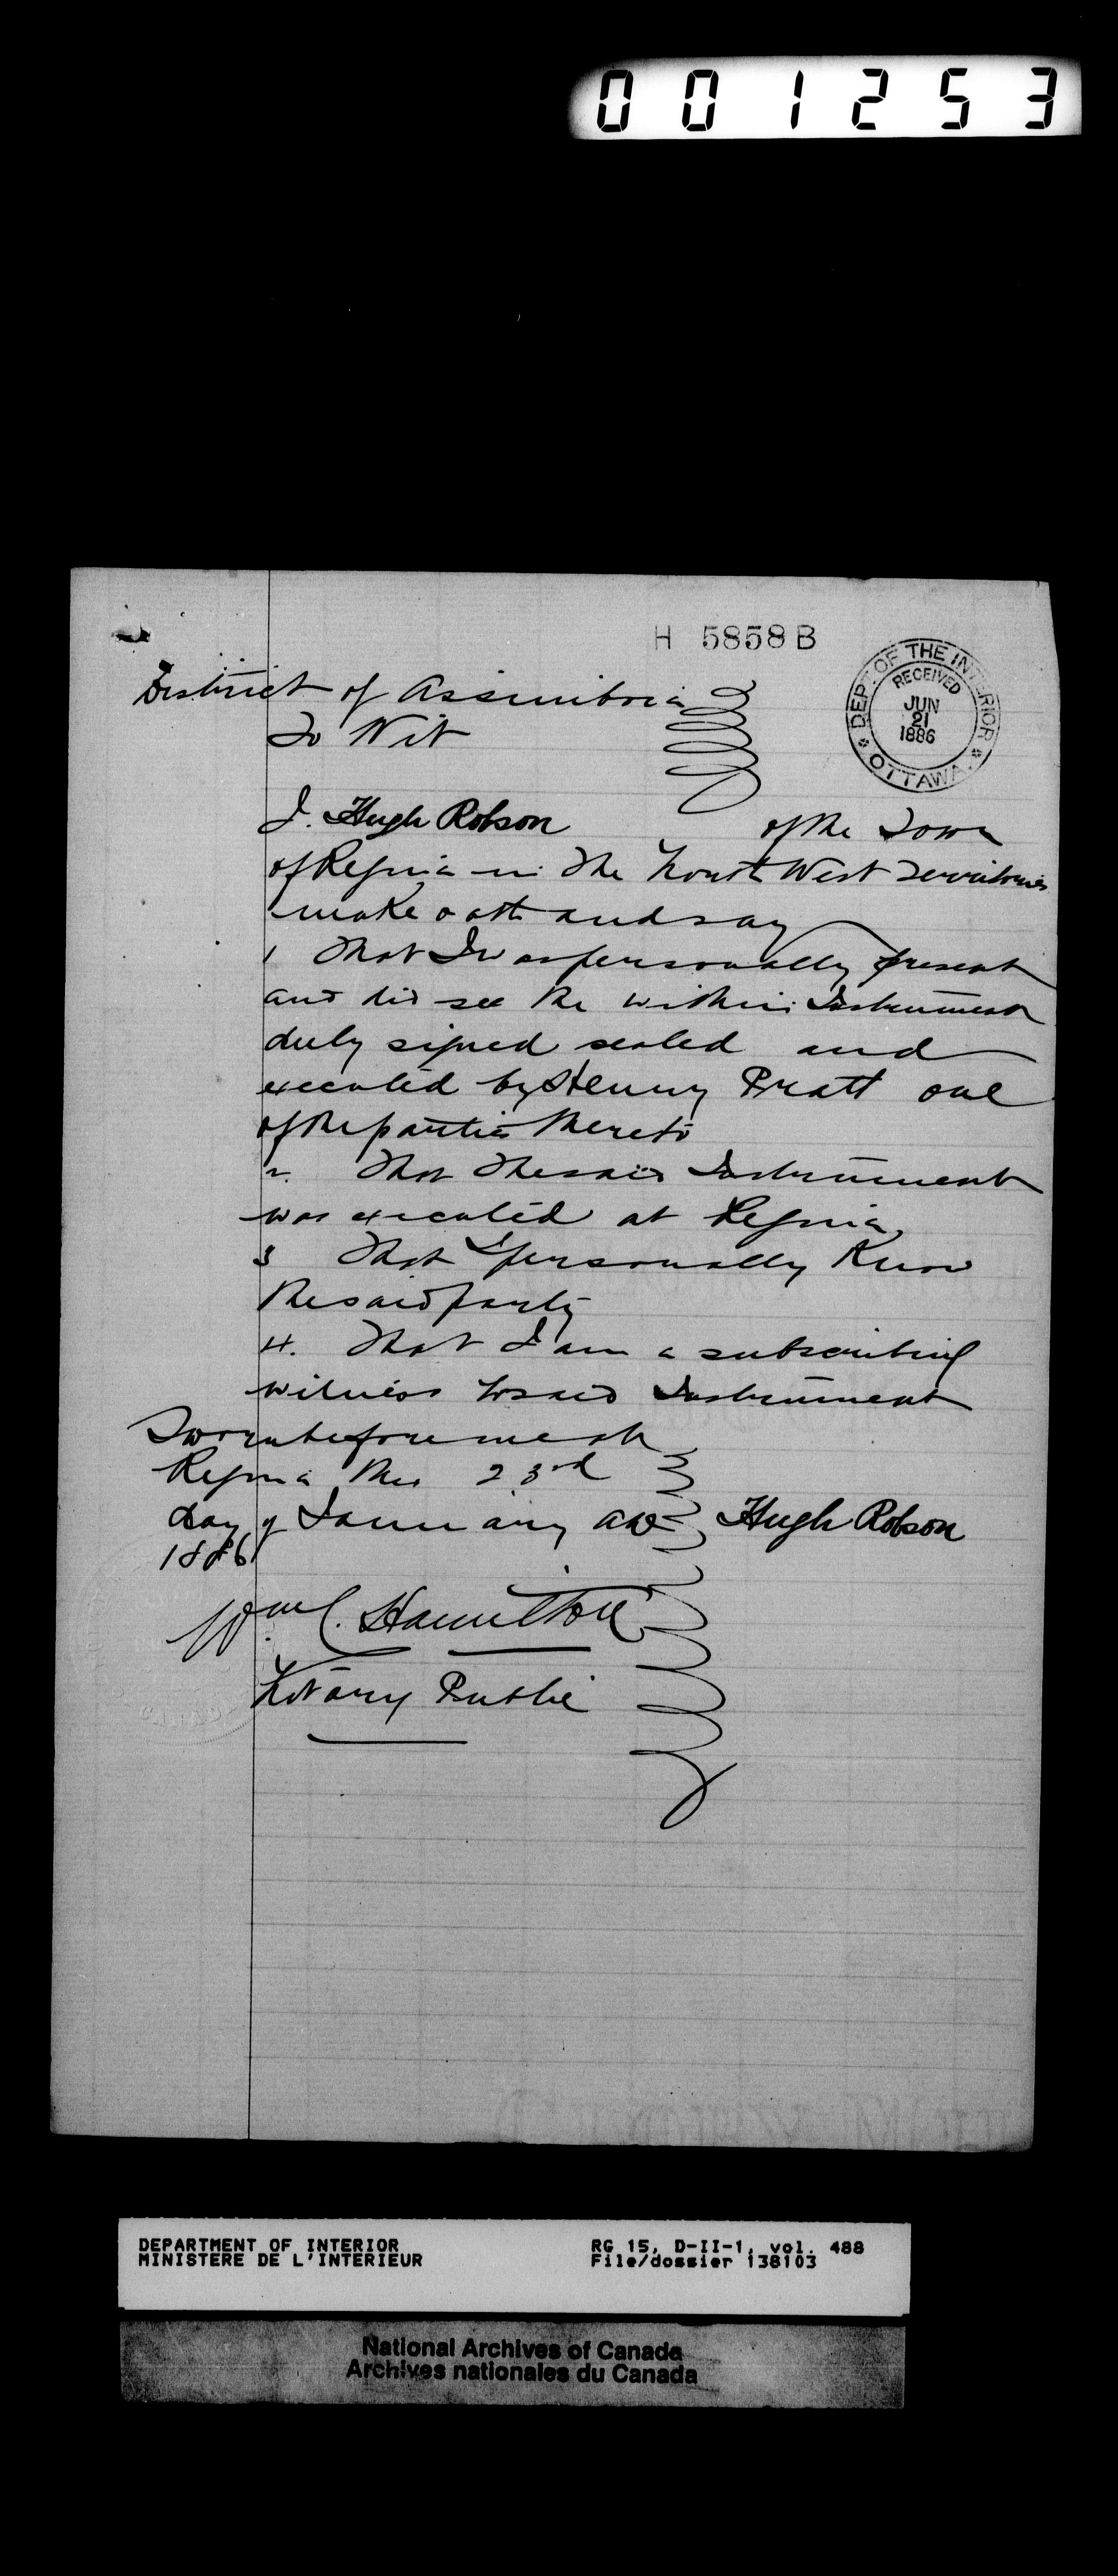 001253
H 5858 B
DEPT. OF THE INTERIOR
RECEIVED
JUN
21
1886
OTTAWA
District of Assiniboia
To Wit
I. Hugh Robson of the Town
of Regina in the North West Territories
make oath and say
1 That I was personally present
and did see the within Instrument
duly signed sealed and
executed by Henry Pratt one
of the parties thereto
2. That the said Instrument
was executed at Regina
3 That I personally Know
the said party
4. That I am a subscribing
witness to said Instrument
Sworn before me at
Regina this 23rd
day of January AD Hugh Robson
1886
Wm C. Hamilton
Notary Public
CANADA
DEPARTMENT OF INTERIOR RG 15, D-II-1, vol. 488
MINISTERE DE L'INTERIEUR File/dossier 138103
National Archives of Canada
Archives nationales du Canada